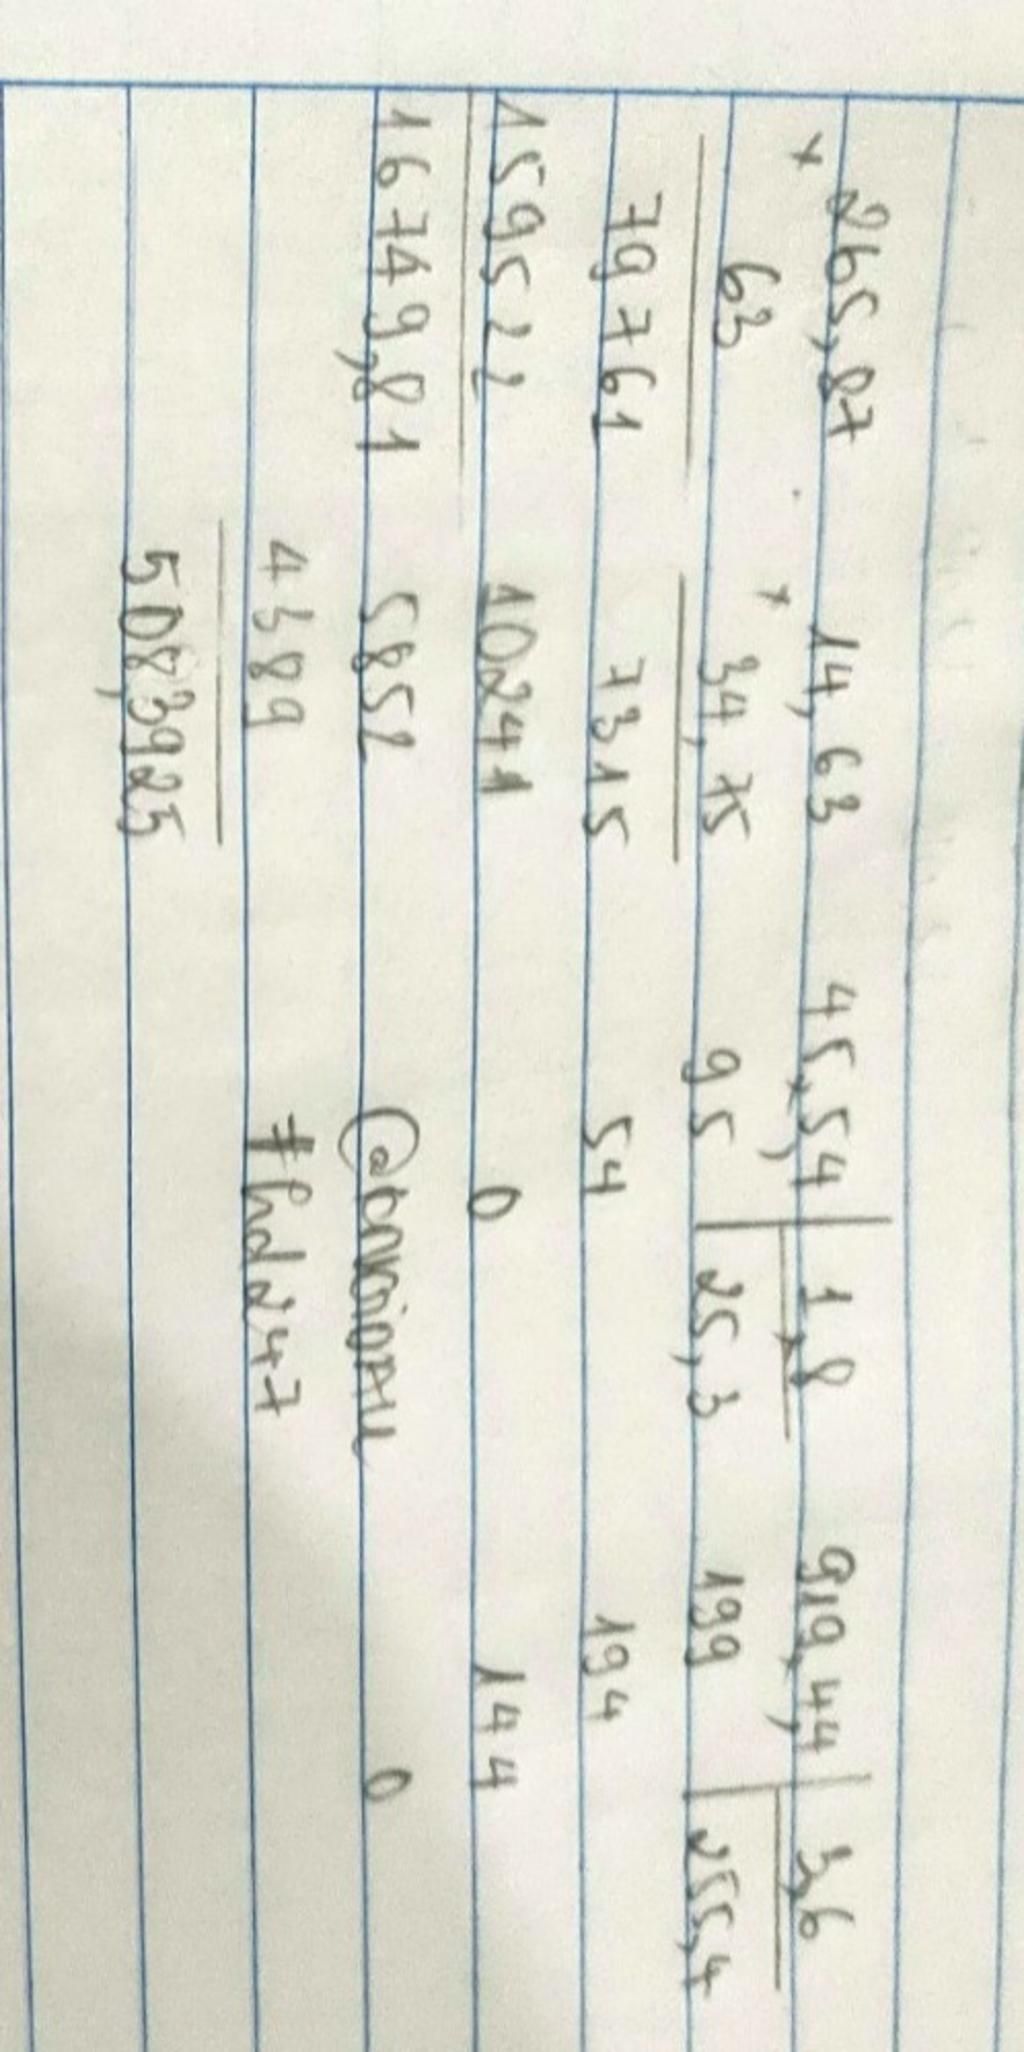 × 265,87 × 14,63 45,54 1,8 919,44 3,6
63 34,75 95 25,3 199 255,4
79761 7315 54 194
159522 10241 0 144
16749,81 5852 0
4389 #hd247
508,3925